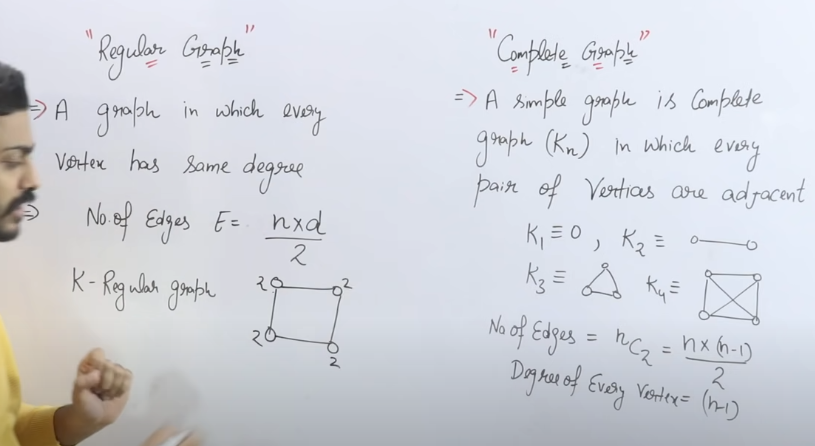 "Regular Graph"
⇒ A graph in which every
Vertex has same degree
⇒ No. of Edges E = n×d / 2
K-Regular graph
2 2
2 2
"Complete Graph"
⇒ A simple graph is Complete
graph (Kn) in which every
pair of Vertices are adjacent
K1 ≡ 0 , K2 ≡
K3 ≡ K4 ≡
No of Edges = nC2 = n×(n-1) / 2
Degree of Every Vertex = (n-1)